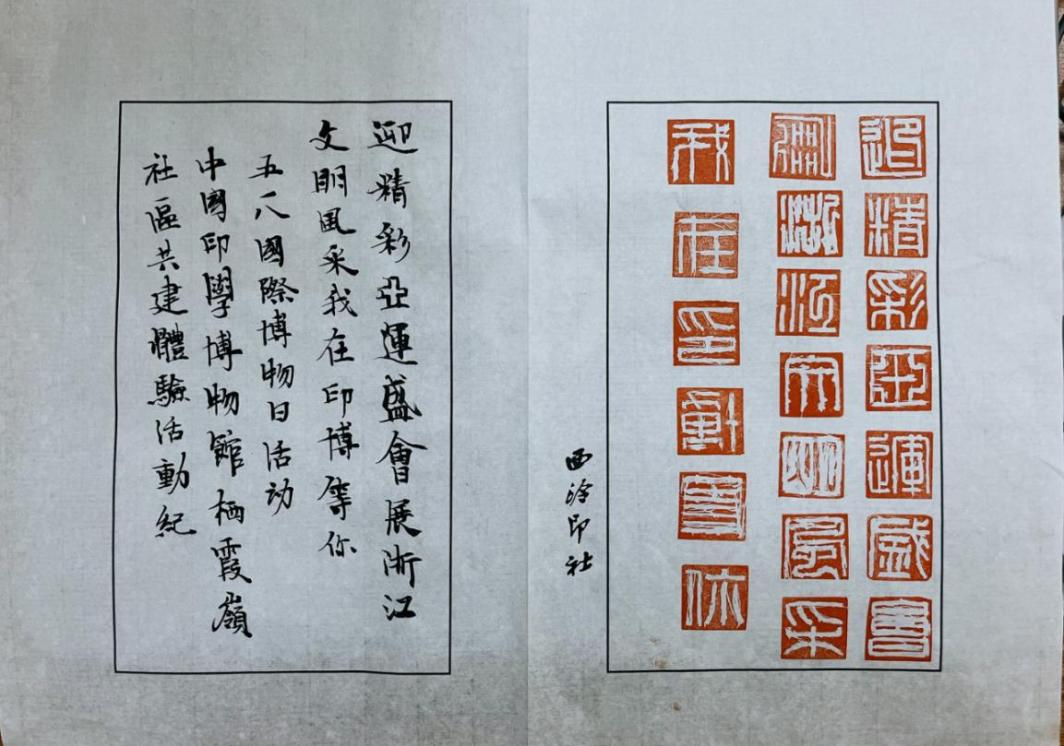 迎精彩亞運盛會
展浙江文明風采
我在印博等你
西泠印社
迎精彩亞運盛會展浙江
文明風采我在印博等你
五八國際博物日活动
中國印學博物館栖霞嶺
社區共建體驗活動紀